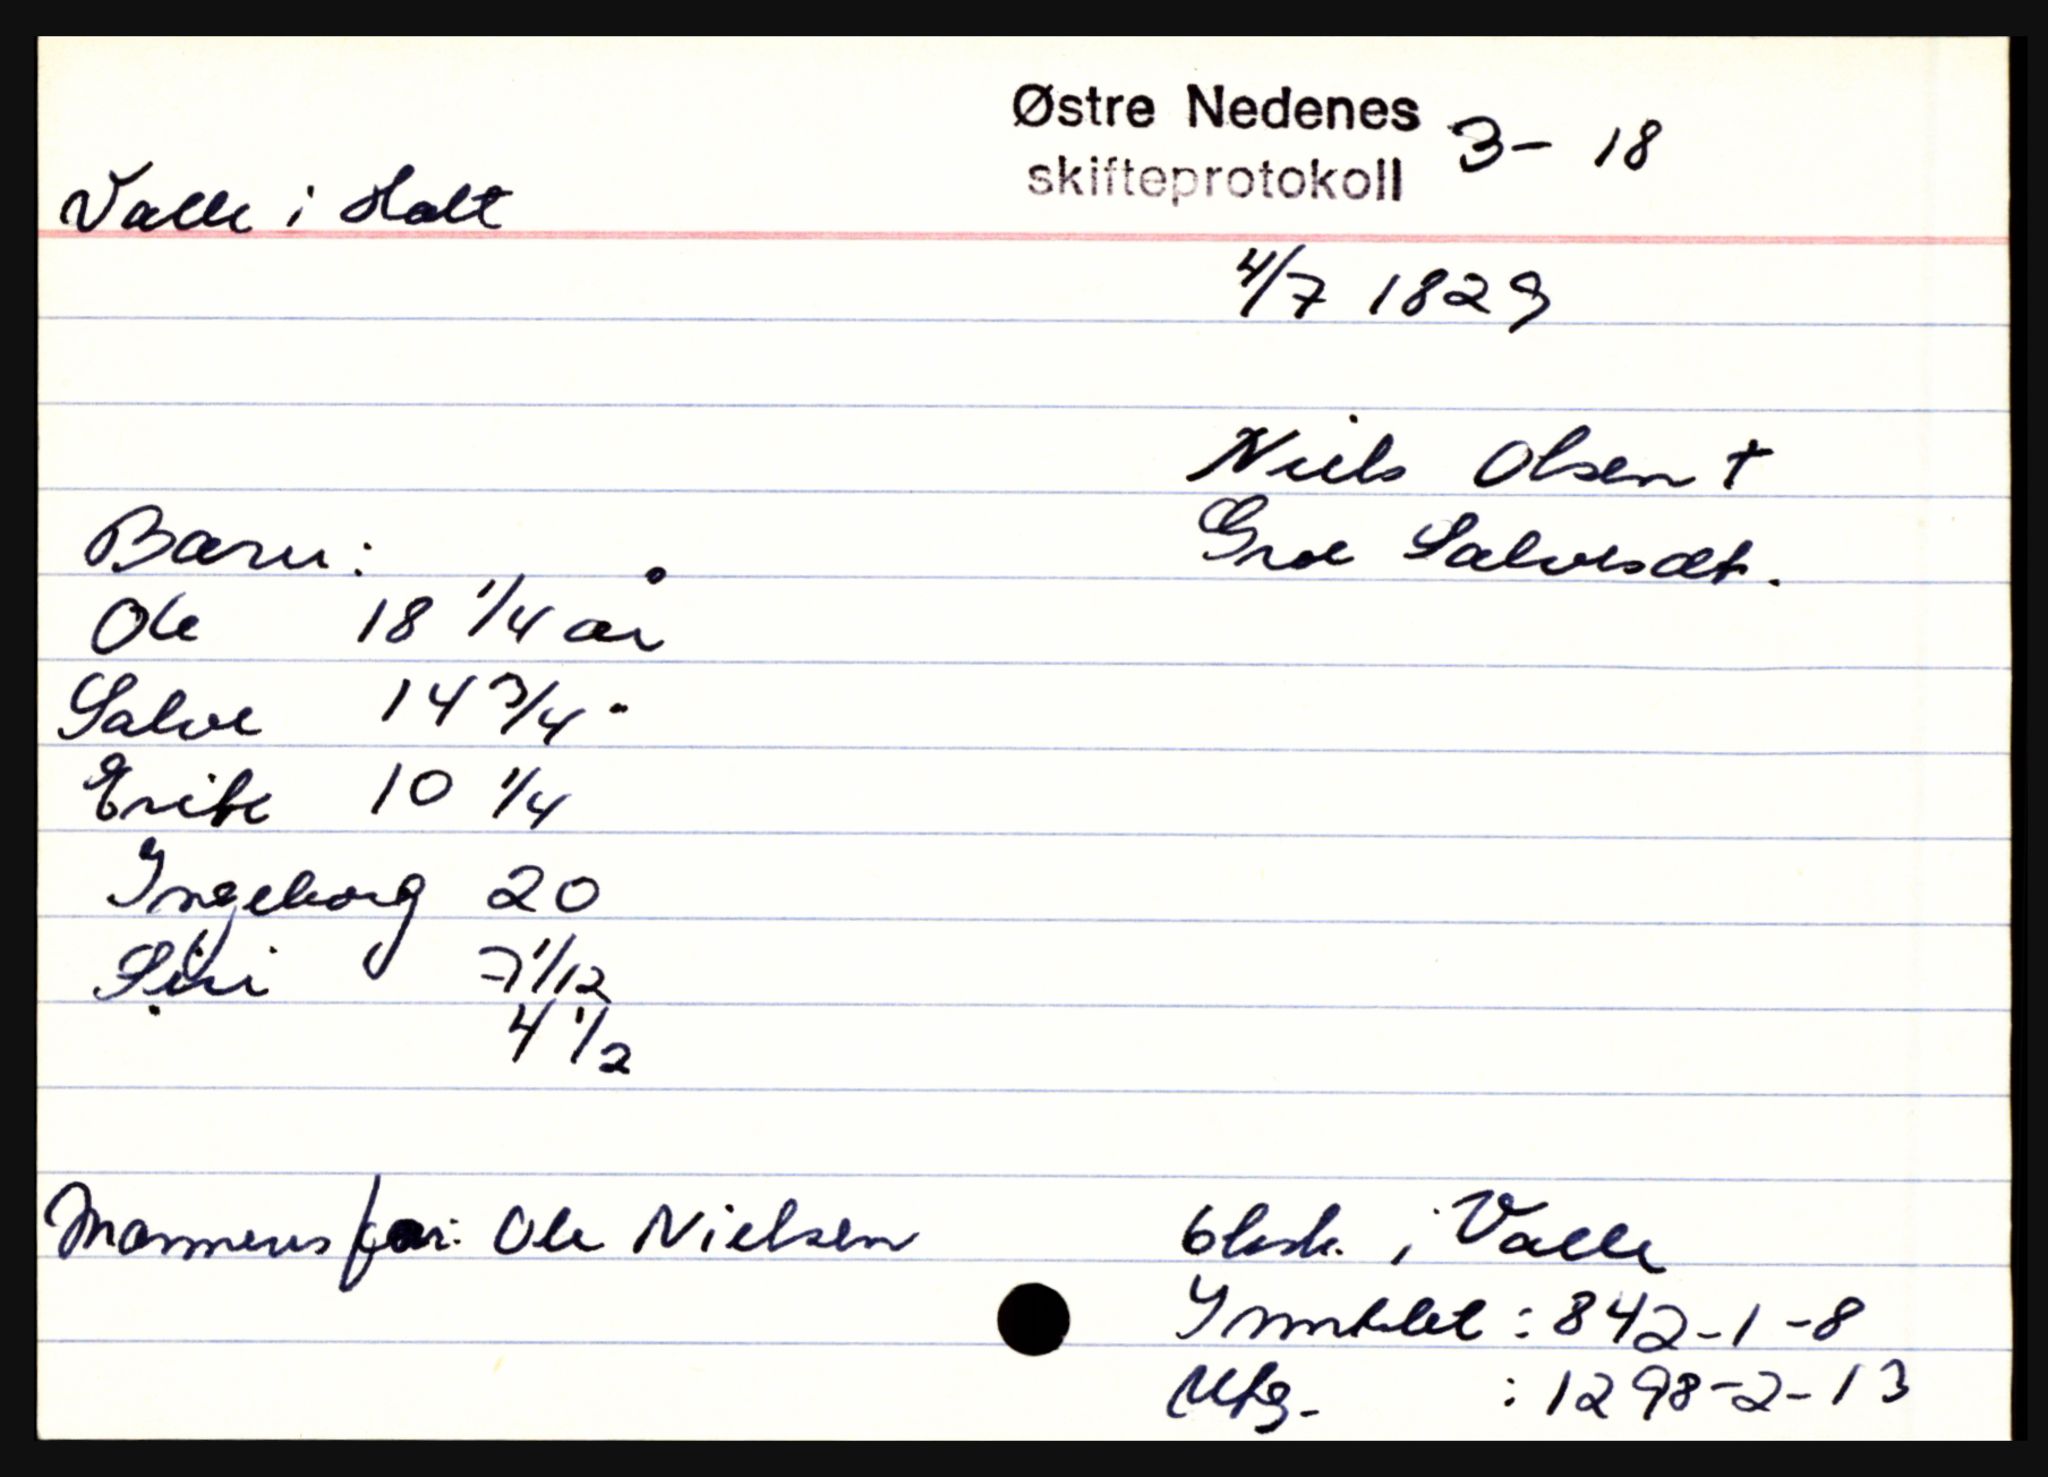 Østre Nedenes 3- 18
skifteprotokoll
Valle i Holt
4/7 1829
Niels Olsen †
Groe Salvesdt.
Barn:
Ole 18 1/4 år
Salve 14 3/4 "
Erik 10 1/4
Ingeborg 20
Siri 7 1/12
4 1/2
Mannens far: Ole Nielsen
i Valle
: 842-1-8
Utg. : 1298-2-13